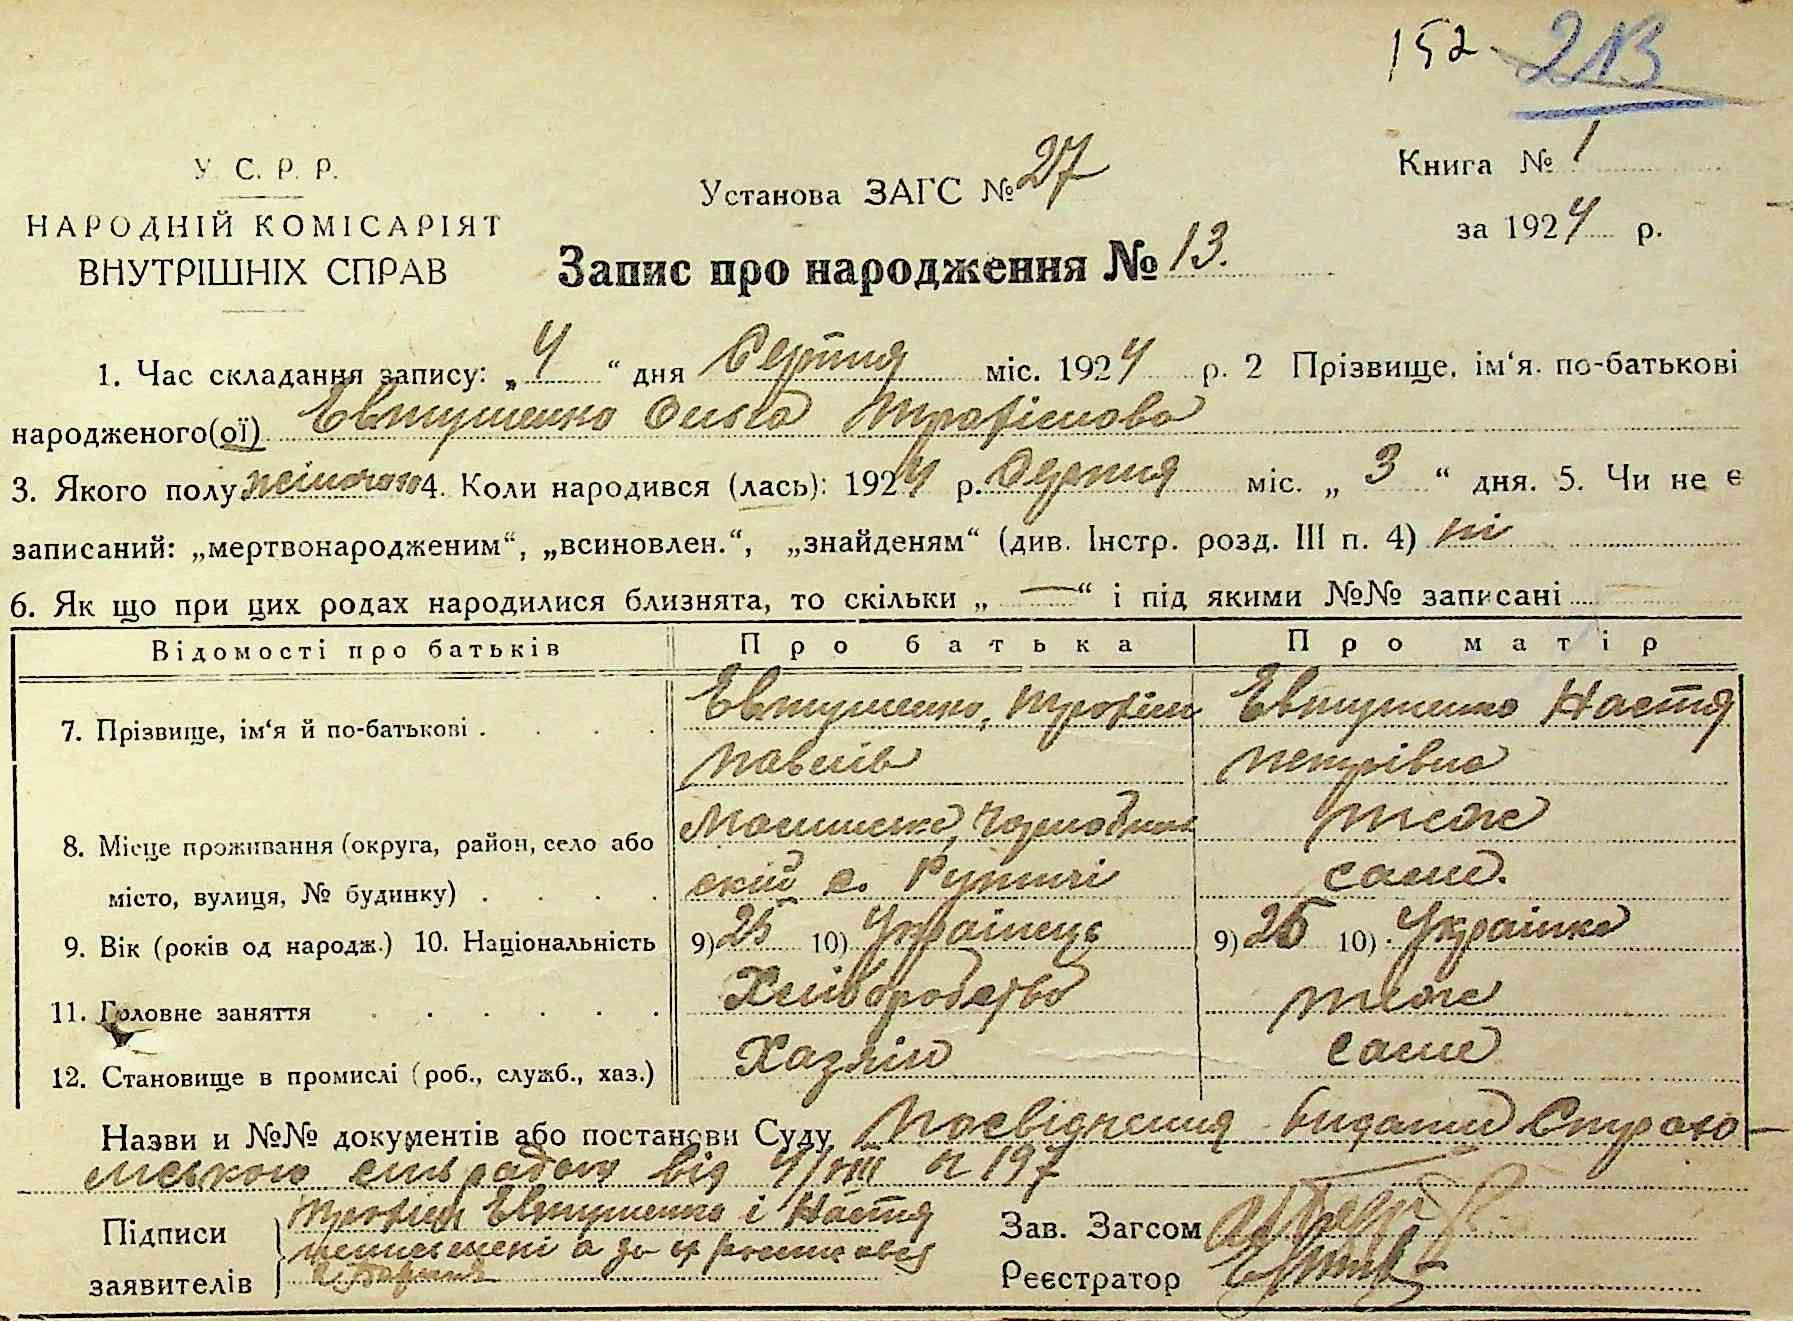 152 213
У. С. Р. Р.
НАРОДНІЙ КОМІСАРІЯТ
ВНУТРІШНІХ СПРАВ
Установа ЗАГС № 27
Запис про народження № 13.
Книга № 1
за 1924 р.
1. Час складання запису: „ 4 “ дня Серпня міс. 1924 р. 2 Прізвище, ім'я. по-батькові
народженого(ої) Евтушенко Ольга Трофімова
3. Якого полу жіночого 4. Коли народився (лась): 1924 р. Серпня міс. „ 3 “ дня. 5. Чи не є
записаний: „мертвонародженим“, „всиновлен.“, „знайденям“ (див. Інстр. розд. III п. 4) ні
6. Як що при цих родах народилися близнята, то скільки „ — “ і під якими №№ записані
Відомості про батьків Про батька Про матір
7. Прізвище, ім'я й по-батькові . . . . Евтушенко, Трофім Евтушенко Настя
Павлів Петрівна
8. Місце проживання (округа, район, село або Малинська, Чорнобиль теж
місто, вулиця, № будинку) . . . . ский с. саме.
9. Вік (років од народж.) 10. Національність 9) 25 10) Українець 9) 26 10) Українка
11. Головне заняття . . . . . . Хліборобство теж
12. Становище в промислі (роб., служб., хаз.) Хазяін саме
Назви и №№ документів або постанови Суду Посвідчення видани
сільрадою від 4/VIII № 197
Підписи Трофім Евтушенко і Настя
неписьмені а за их
заявителів
Зав. Загсом
Реєстратор